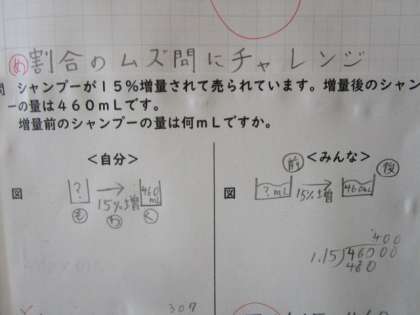 め 割合のムズ問にチャレンジ
問 シャンプーが15%増量されて売られています。増量後のシャン
ーの量は460mLです。
増量前のシャンプーの量は何mLですか。
<自分>
図
?
15%増
460mL
も
わ
く
<みんな>
図
前
後
?mL
15%増
460mL
400
1.15)46000
460
307